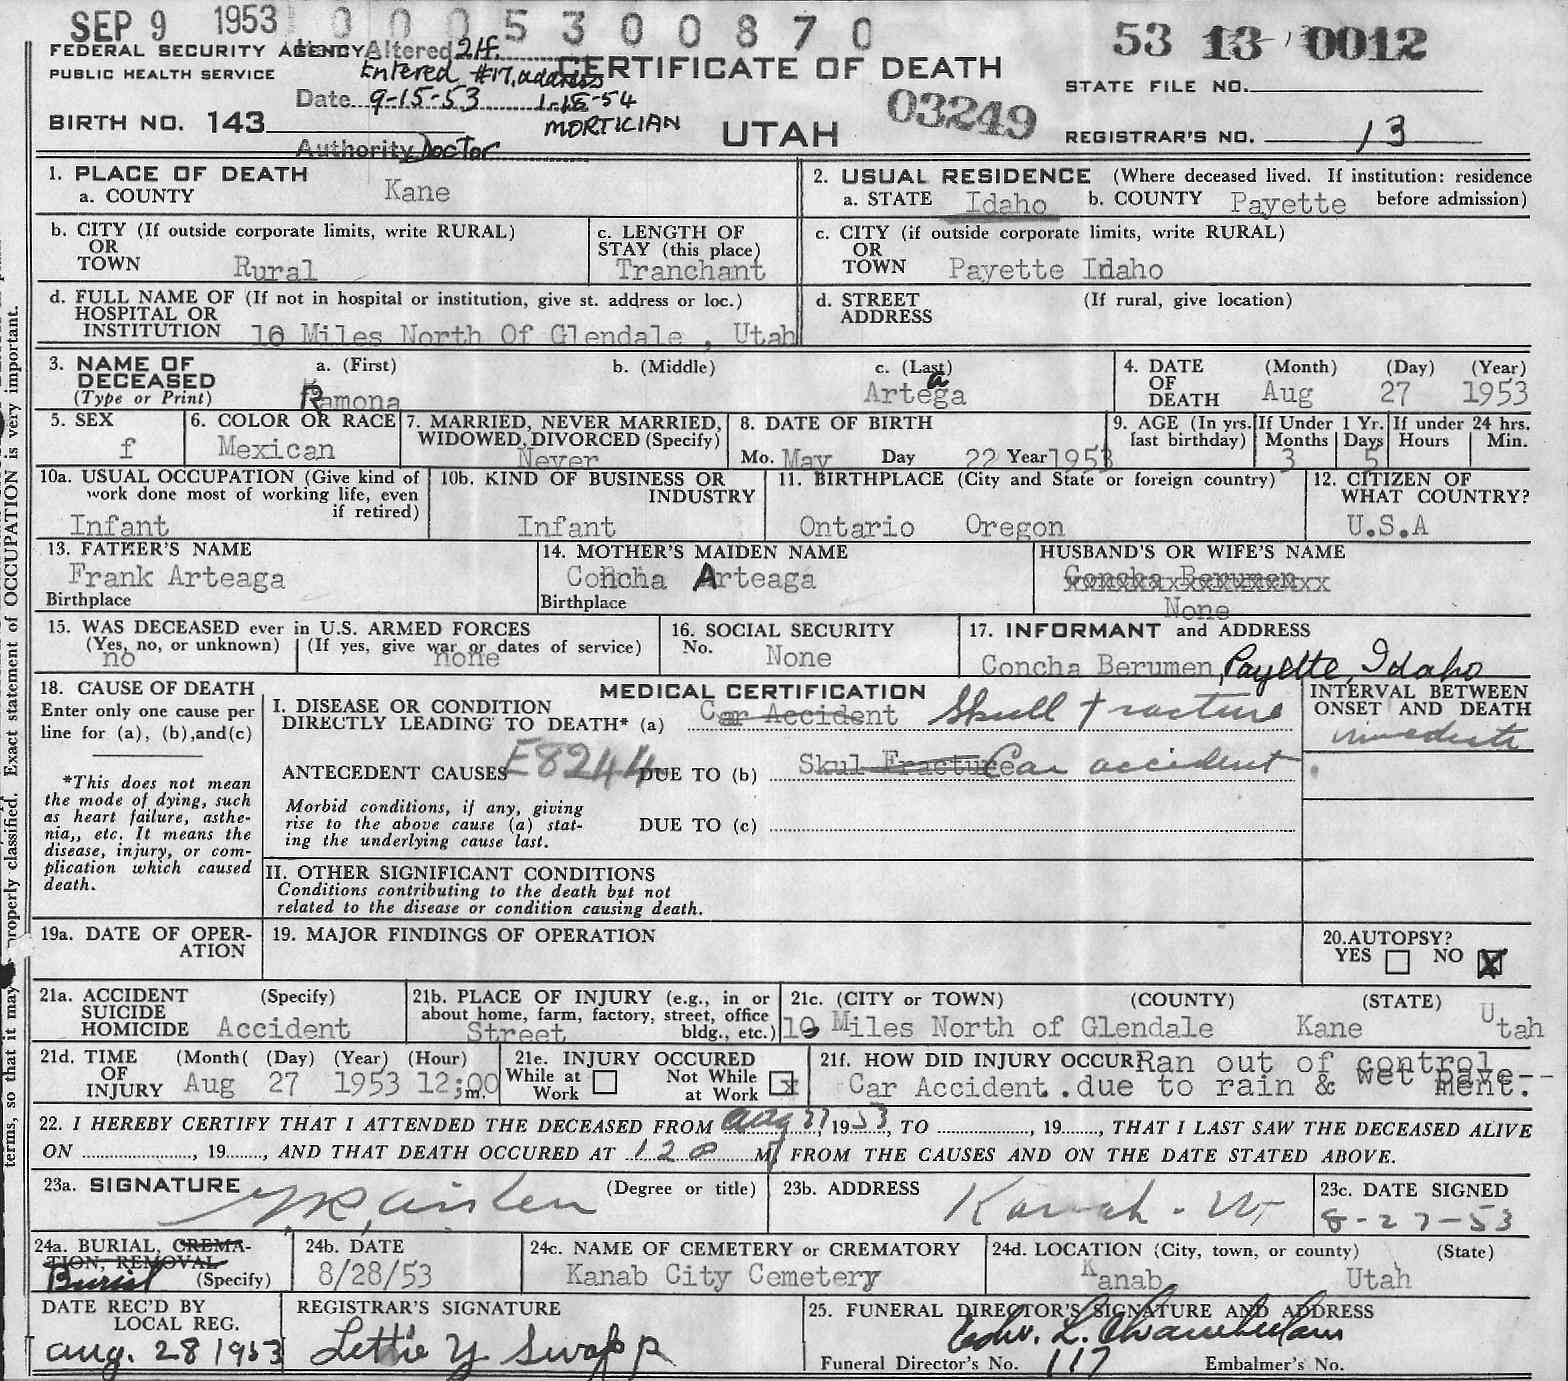 SEP 9 1953 0 0 0 5 3 0 0 8 7 0 53 13 0012
FEDERAL SECURITY AGENCY Altered 21f. CERTIFICATE OF DEATH
PUBLIC HEALTH SERVICE Entered #17, address STATE FILE NO.
Date 9-15-53 1-18-54 03249
BIRTH NO. 143 MORTICIAN UTAH REGISTRAR'S NO. 13
Authority Doctor
1. PLACE OF DEATH 2. USUAL RESIDENCE (Where deceased lived. If institution: residence
a. COUNTY Kane a. STATE Idaho b. COUNTY Payette before admission)
b. CITY (If outside corporate limits, write RURAL) c. LENGTH OF c. CITY (if outside corporate limits, write RURAL)
OR STAY (this place) OR
TOWN Rural Tranchant TOWN Payette Idaho
d. FULL NAME OF (If not in hospital or institution, give st. address or loc.) d. STREET (If rural, give location)
HOSPITAL OR ADDRESS
INSTITUTION 10 Miles North Of Glendale , Utah
3. NAME OF a. (First) b. (Middle) c. (Last) 4. DATE (Month) (Day) (Year)
DECEASED OF
(Type or Print) Ramona Artega a DEATH Aug 27 1953
5. SEX 6. COLOR OR RACE 7. MARRIED, NEVER MARRIED, 8. DATE OF BIRTH 9. AGE (In yrs. If Under 1 Yr. If under 24 hrs.
f Mexican WIDOWED, DIVORCED (Specify) last birthday) Months Days Hours Min.
Never Mo. May Day 22 Year 1953 3 5
10a. USUAL OCCUPATION (Give kind of 10b. KIND OF BUSINESS OR 11. BIRTHPLACE (City and State or foreign country) 12. CITIZEN OF
work done most of working life, even INDUSTRY WHAT COUNTRY?
if retired)
Infant Infant Ontario Oregon U.S.A
13. FATHER'S NAME 14. MOTHER'S MAIDEN NAME HUSBAND'S OR WIFE'S NAME
Frank Arteaga Concha Arteaga Concha Berumen
Birthplace Birthplace None
15. WAS DECEASED ever in U.S. ARMED FORCES 16. SOCIAL SECURITY 17. INFORMANT and ADDRESS
(Yes, no, or unknown) (If yes, give war or dates of service) No.
no none None Concha Berumen, Payette, Idaho
18. CAUSE OF DEATH MEDICAL CERTIFICATION INTERVAL BETWEEN
Enter only one cause per I. DISEASE OR CONDITION ONSET AND DEATH
line for (a), (b), and (c) DIRECTLY LEADING TO DEATH* (a) Car Accident Skull Fracture immediate
ANTECEDENT CAUSES E8244 DUE TO (b) Skul Fracture Car accident
*This does not mean
the mode of dying, such Morbid conditions, if any, giving
as heart failure, asthe- rise to the above cause (a) stat- DUE TO (c)
nia,, etc. It means the ing the underlying cause last.
disease, injury, or com-
plication which caused II. OTHER SIGNIFICANT CONDITIONS
death. Conditions contributing to the death but not
related to the disease or condition causing death.
19a. DATE OF OPER- 19. MAJOR FINDINGS OF OPERATION 20. AUTOPSY?
ATION YES NO X
21a. ACCIDENT (Specify) 21b. PLACE OF INJURY (e.g., in or 21c. (CITY or TOWN) (COUNTY) (STATE)
SUICIDE about home, farm, factory, street, office
HOMICIDE Accident Street bldg., etc.) 10 Miles North of Glendale Kane Utah
21d. TIME (Month( (Day) (Year) (Hour) 21e. INJURY OCCURED 21f. HOW DID INJURY OCCUR Ran out of control
OF While at Not While
INJURY Aug 27 1953 12;00 m. Work at Work x Car Accident . due to rain & wet pave--
ment.
22. I HEREBY CERTIFY THAT I ATTENDED THE DECEASED FROM Aug 27, 1953, TO , 19 , THAT I LAST SAW THE DECEASED ALIVE
ON , 19 , AND THAT DEATH OCCURED AT M, FROM THE CAUSES AND ON THE DATE STATED ABOVE.
23a. SIGNATURE (Degree or title) 23b. ADDRESS Kanab - Ut 23c. DATE SIGNED
8-27-53
24a. BURIAL, CREMA- 24b. DATE 24c. NAME OF CEMETERY or CREMATORY 24d. LOCATION (City, town, or county) (State)
TION, REMOVAL
Burial (Specify) 8/28/53 Kanab City Cemetery Kanab, Utah
DATE REC'D BY REGISTRAR'S SIGNATURE 25. FUNERAL DIRECTOR'S SIGNATURE AND ADDRESS
LOCAL REG. Edw. L. Chamberlain
Aug. 28 1953 Lettie Y Swapp Funeral Director's No. 117 Embalmer's No.
terms, so that it may properly classified. Exact statement of OCCUPATION is very important.